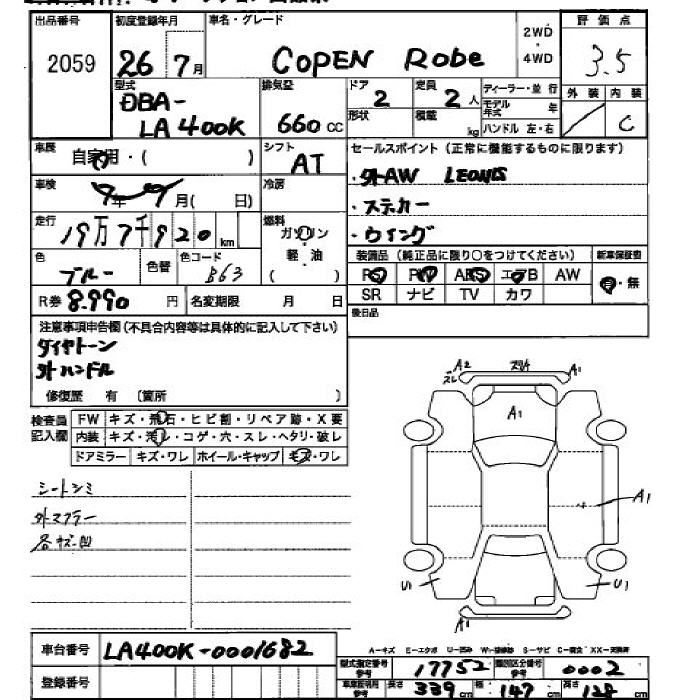 出品番号 初度登録年月 車名・グレード 2WD・4WD 評価点
2059 26年7月 COPEN Robe 3.5
型式 排気量 ドア 定員 ディーラー・並行 外装 内装
DBA-LA400K 660cc 2 2人 モデル年式 年 C
形状 積載 kg ハンドル 左・右
車歴 自家用・( ) シフト AT
セールスポイント(正常に機能するものに限ります)
車検 年 月( 日) 冷房
・外AW LEONIS
・ステッカー
・ウイング
走行 19万7千920km 燃料 ガソリン 軽・油 ( )
色 ブルー 色替 色コード B63
装備品(純正品に限り○をつけてください) 新車保証書
PS PW ABS エアB AW 有・無
SR ナビ TV カワ
R券 8.990円 名変期限 月 日
後日品
注意事項申告欄(不具合内容等は具体的に記入して下さい)
ダイヤトーン
外ハンドル
修復歴 有 〔箇所 〕
検査員記入欄
FW キズ・飛石・ヒビ割・リペア跡・X要
内装 キズ・汚レ・コゲ・穴・スレ・ヘタリ・破レ
ドアミラー キズ・ワレ ホイール・キャップ キズ・ワレ
シートシミ
外マフラー
各キズ・凹
A2 スレ A1
A1
A1
U1 U1
A1
A-キズ E-エクボ U-凹み W-補修跡 S-サビ C-腐食 XX-交換済
車台番号 LA400K-0001682
登録番号
型式指定番号 参考 17752 類別区分番号 参考 0002
車庫証明用 参考 長さ 339cm 幅 147cm 高さ 128cm